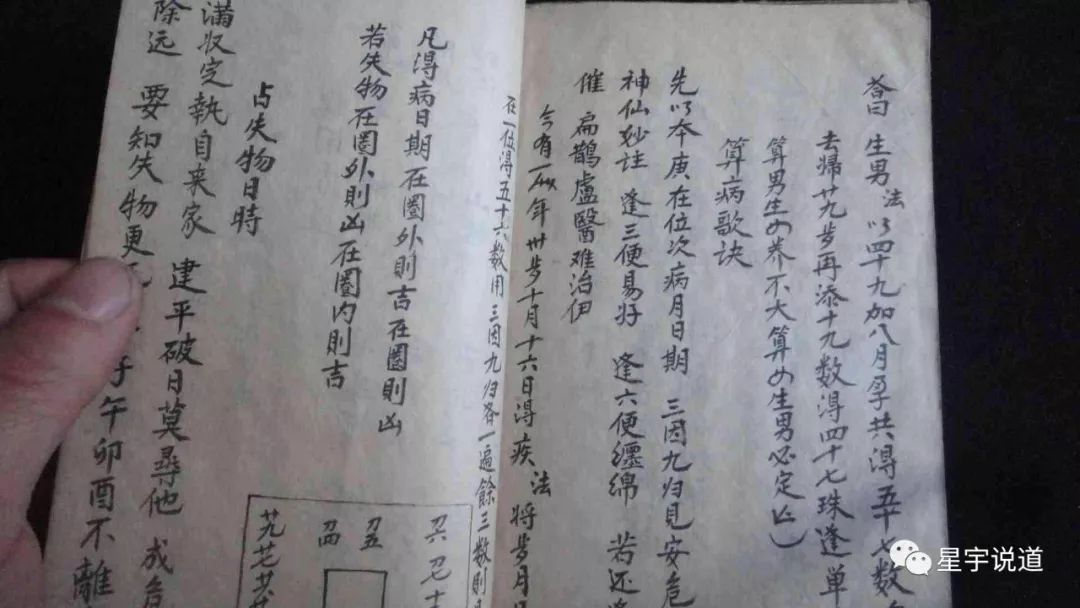 荅曰 生男 法 以四十九加八月孕共淂五十七数
去歸廿九步再添十九数淂四十七珠逢单
算男生女养不大算女生男必定亡
算病歌诀
先以本庚在位次病月日期 三因九归見安危
神仙妙诀 逢三便易好 逢六便纏绵 若还逢
催 扁鹊盧醫难治伊
今有一 年卅步十月十六日得疾 法 将步月日
在一位得五十六数用三因九归各一遍餘三数則
凡淂病日期在圈外則吉在圈則凶
若失物在圈外則凶在圈内則吉
占失物日時
满收定執自来家 建平破日莫尋他 成危
除远 要知失物更 子午卯酉不離
星宇说道